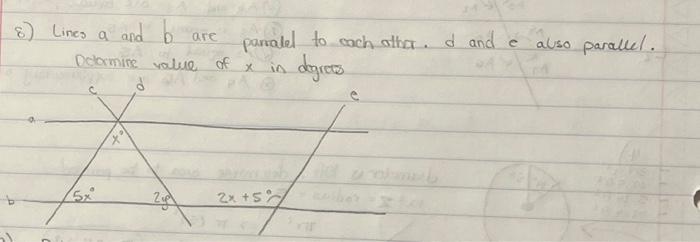 8) Lines a and b are parralel to each other. d and e also parallel.
Determine value of x in degrees
c d e
a
x°
b 5x° 2y° 2x + 5°